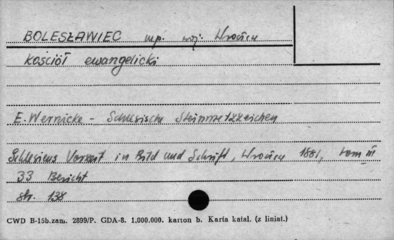 BOLESŁAWIEC mp. woj. Wrocław
kościół ewangelicki
E. Wernicke - Schlesische Steinmetzzeichen
Schlesiens Vorzeit in Bild und Schrift, Wrocław 1881, tom III
33 Bericht
str. 138
CWD B-15b.zam. 2899/P. GDA-8. 1.000.000. karton b. Karta katal. (z liniat.)